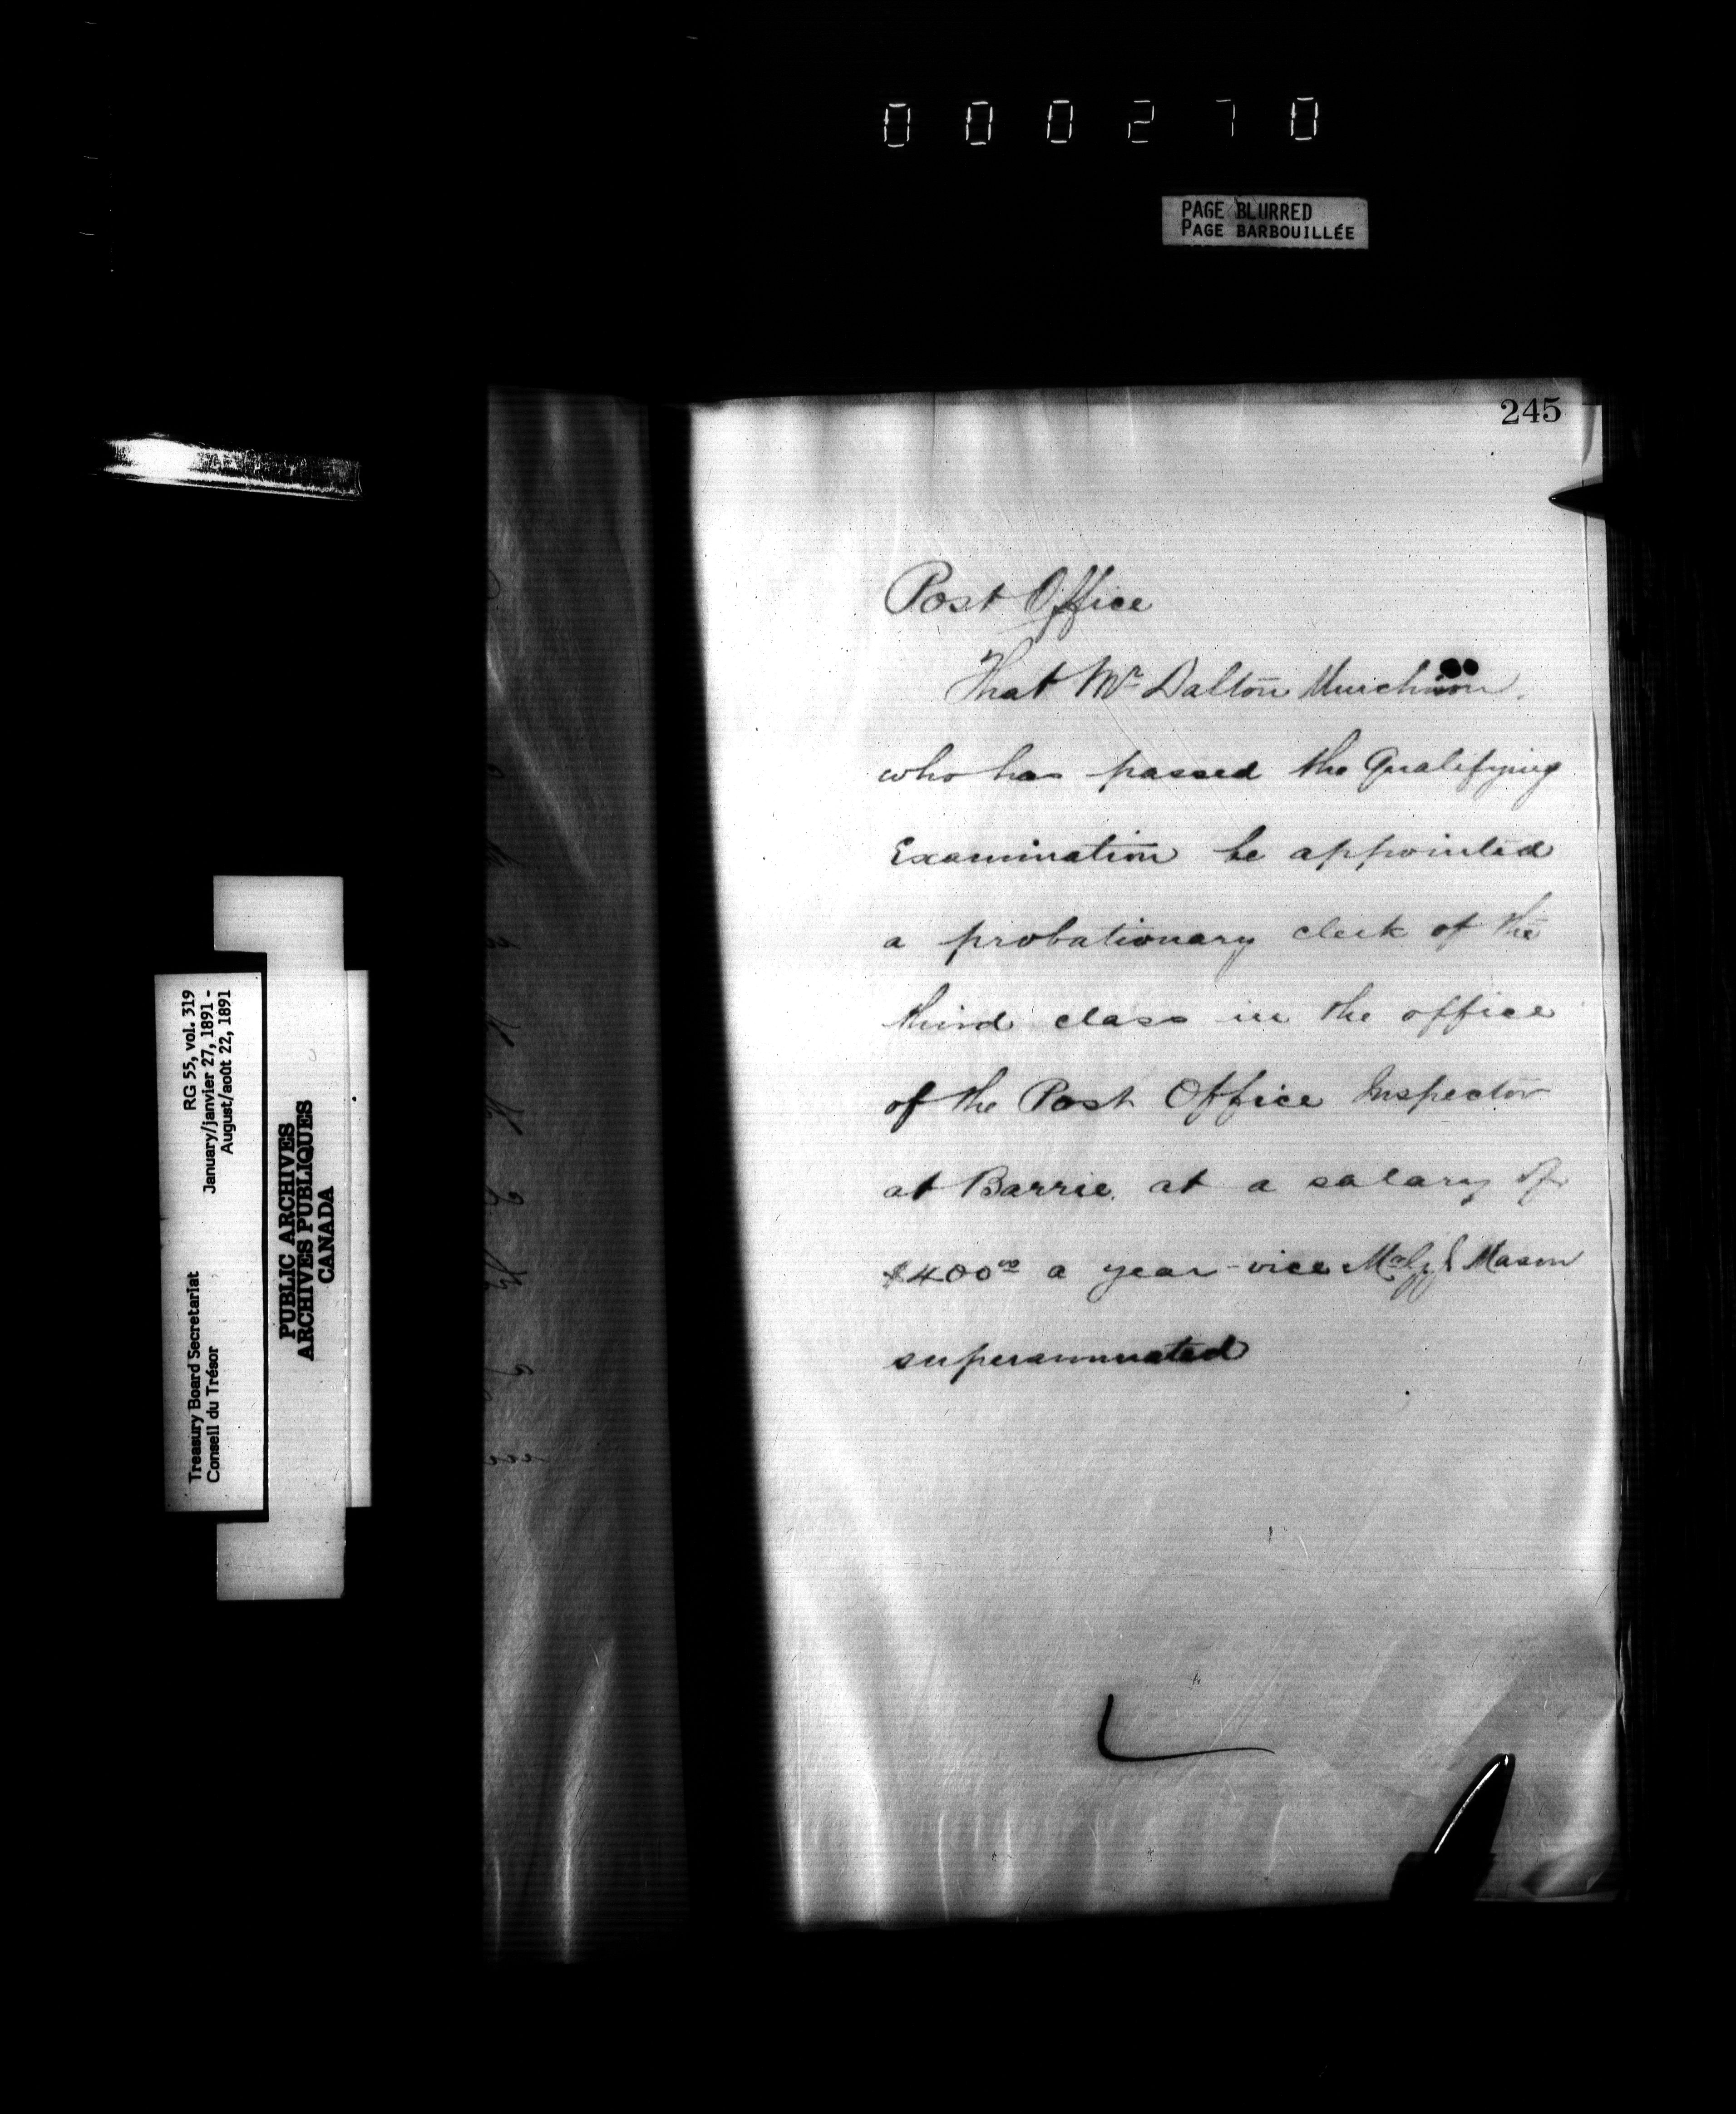 000270
PAGE BLURRED
PAGE BARBOUILLÉE
245
Post Office
That Mr Dalton Murchison
who has passed the Qualifying
Examination be appointed
a probationary clerk of the
third class in the office
of the Post Office Inspector
at Barrie, at a salary of
$400.00 a year vice Mason
superannuated
RG 55, vol. 319
January/janvier 27, 1891 -
August/août 22, 1891
Treasury Board Secretariat
Conseil du Trésor
PUBLIC ARCHIVES
ARCHIVES PUBLIQUES
CANADA